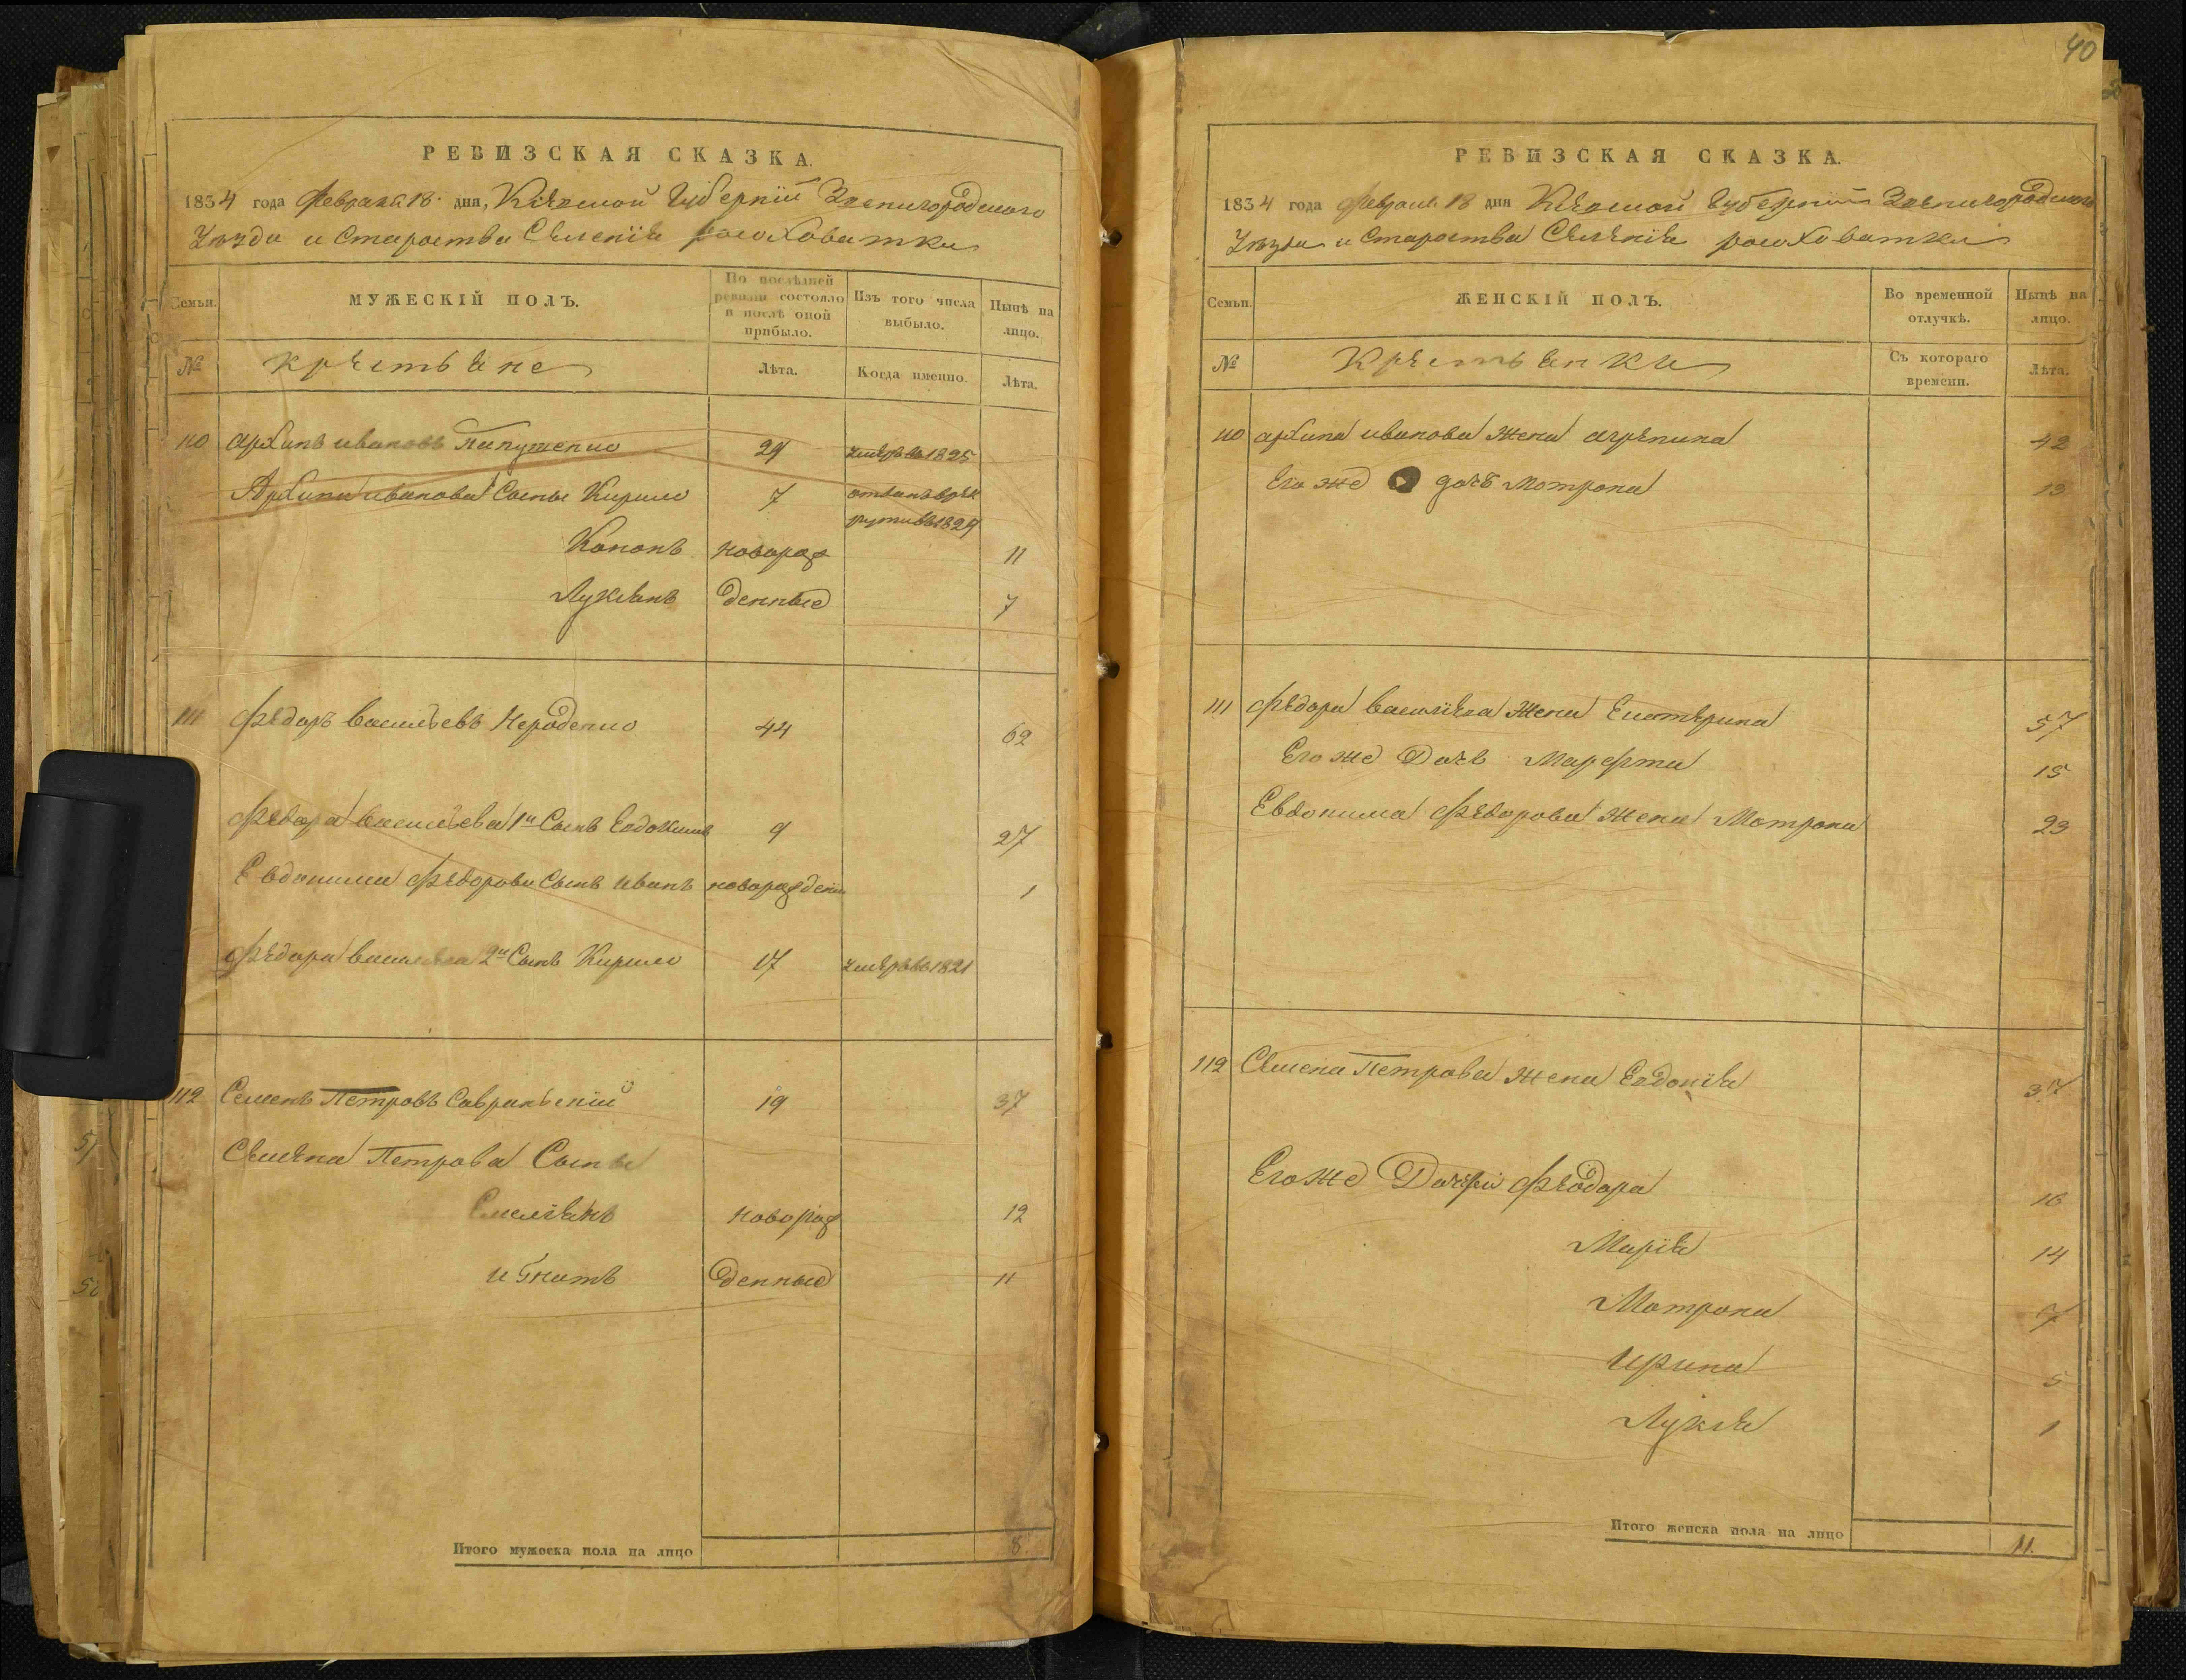 РЕВИЗСКАЯ СКАЗКА.
1834 года Февраля 18 дня, Кіевской Губерніи Звенигородскаго
Уезда и Староства Селенія рософоватки
Семьи.
МУЖЕСКІЙ ПОЛЪ.
По послѣдней ревизіи состояло и послѣ оной прибыло.
Изъ того числа выбыло.
Нынѣ на лицо.
№
крестьяне
Лѣта.
Когда именно.
Лѣта.
110 архипъ ивановъ 29 умеръ въ 1825
Архипа иванова Сыны Кирило 7 отданъ врек
рути въ 1829
Кононъ новорож 11
Лукіянъ денные 7
111 Федоръ васильевъ Нероденко 44 62
Федора васильева 1й Сынъ Евдокимъ 9 27
Евдокима Федорова Сынъ иванъ новорожден 1
Федора васильева 2й Сынъ Кирило 17 умеръ въ 1821
112 Семенъ Петровъ Савранскій 19 37
Семена Петрова Сыны
Емелянъ новорож 12
игнатъ денные 11
Итого мужеска пола на лицо 8
40
РЕВИЗСКАЯ СКАЗКА.
1834 года Февраля 18 дня Кіевской Губерніи Звенигородскаго
Уезда и Староства Селенія
Семьи.
ЖЕНСКІЙ ПОЛЪ.
Во временной отлучкѣ.
Нынѣ на лицо.
№
Крестьянки
Съ котораго времени.
Лѣта.
110 архипа иванова жена агрепина 42
Его же дочь Мотрона 13
111 Федора васильева жена Екатерина 57
Его же Дочь Марфта 15
Евдокима Федорова жена Мотрона 23
112 Семена Петрова жена Евдокія 37
Его же Дочери Феодора 16
Марія 14
Мотрона 7
ирина 5
Лукія 1
Итого женска пола на лицо 11.